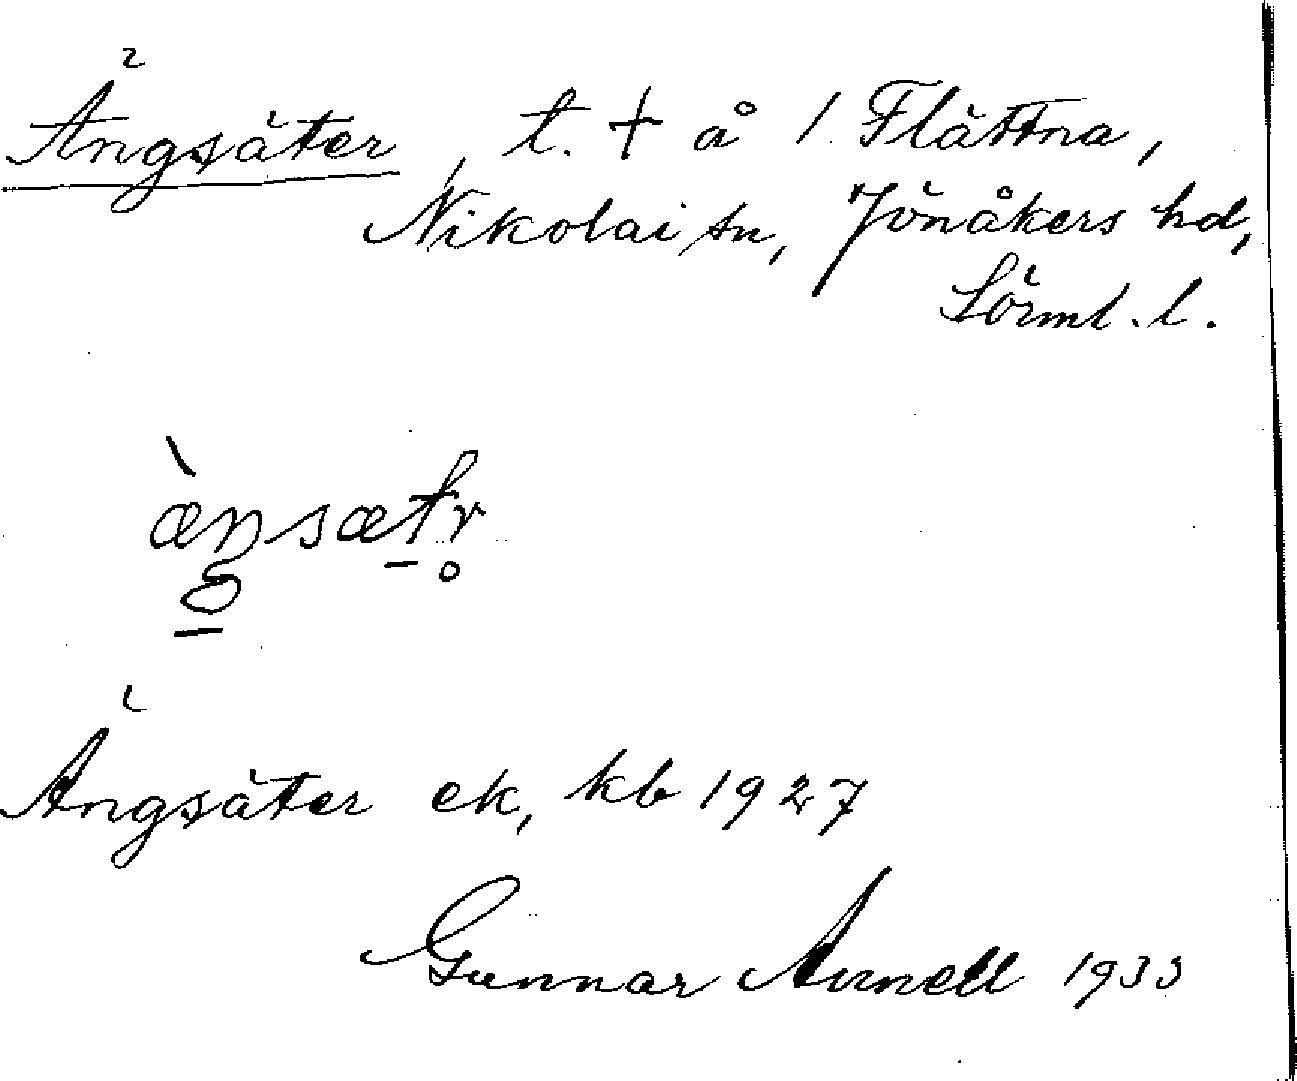 Ängsäter, t. + å 1 Flättna,
Nikolai sn, Jönåkers hd,
Sörml. l.
æŋsætr̥
Ängsäter ek, kb 1927
Gunnar 1933